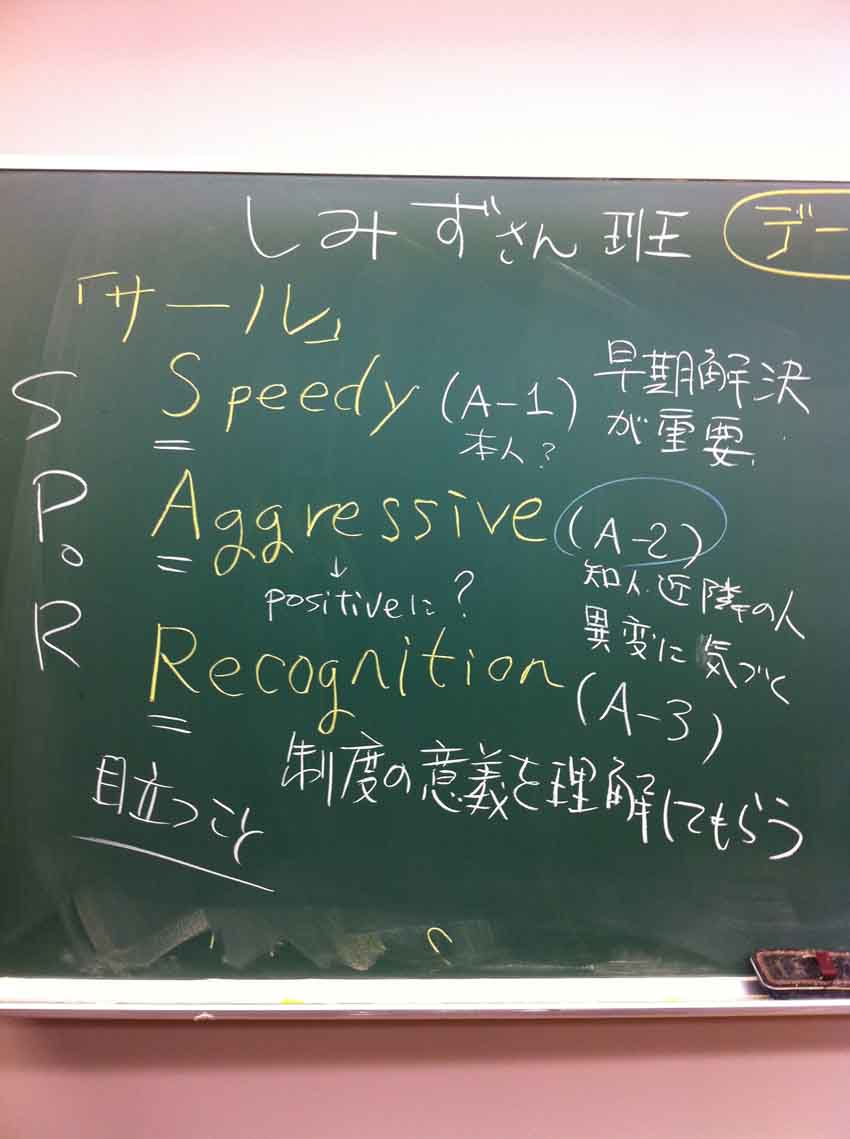 しみずさん班 デー
「サール」
S Speedy (A-1) 早期解決
が重要
本人?
P。 Aggressive (A-2)
↓
positiveに?
知人.近隣の人
異変に気づく
R Recognition (A-3)
目立つこと
制度の意義を理解してもらう